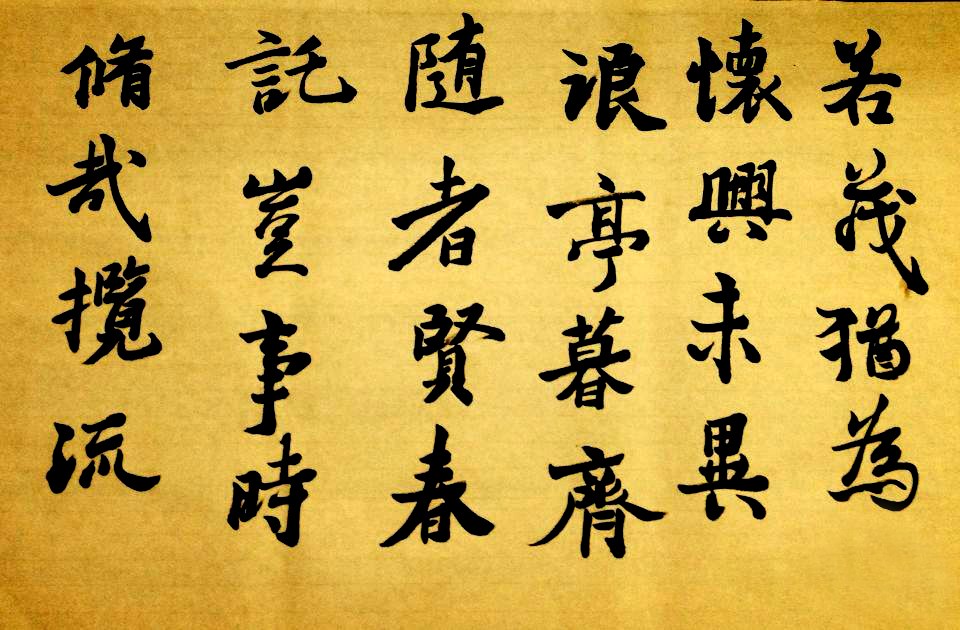 若茂猶為
懷興未異
浪亭暮齊
随者賢春
託豈事時
脩哉攬流